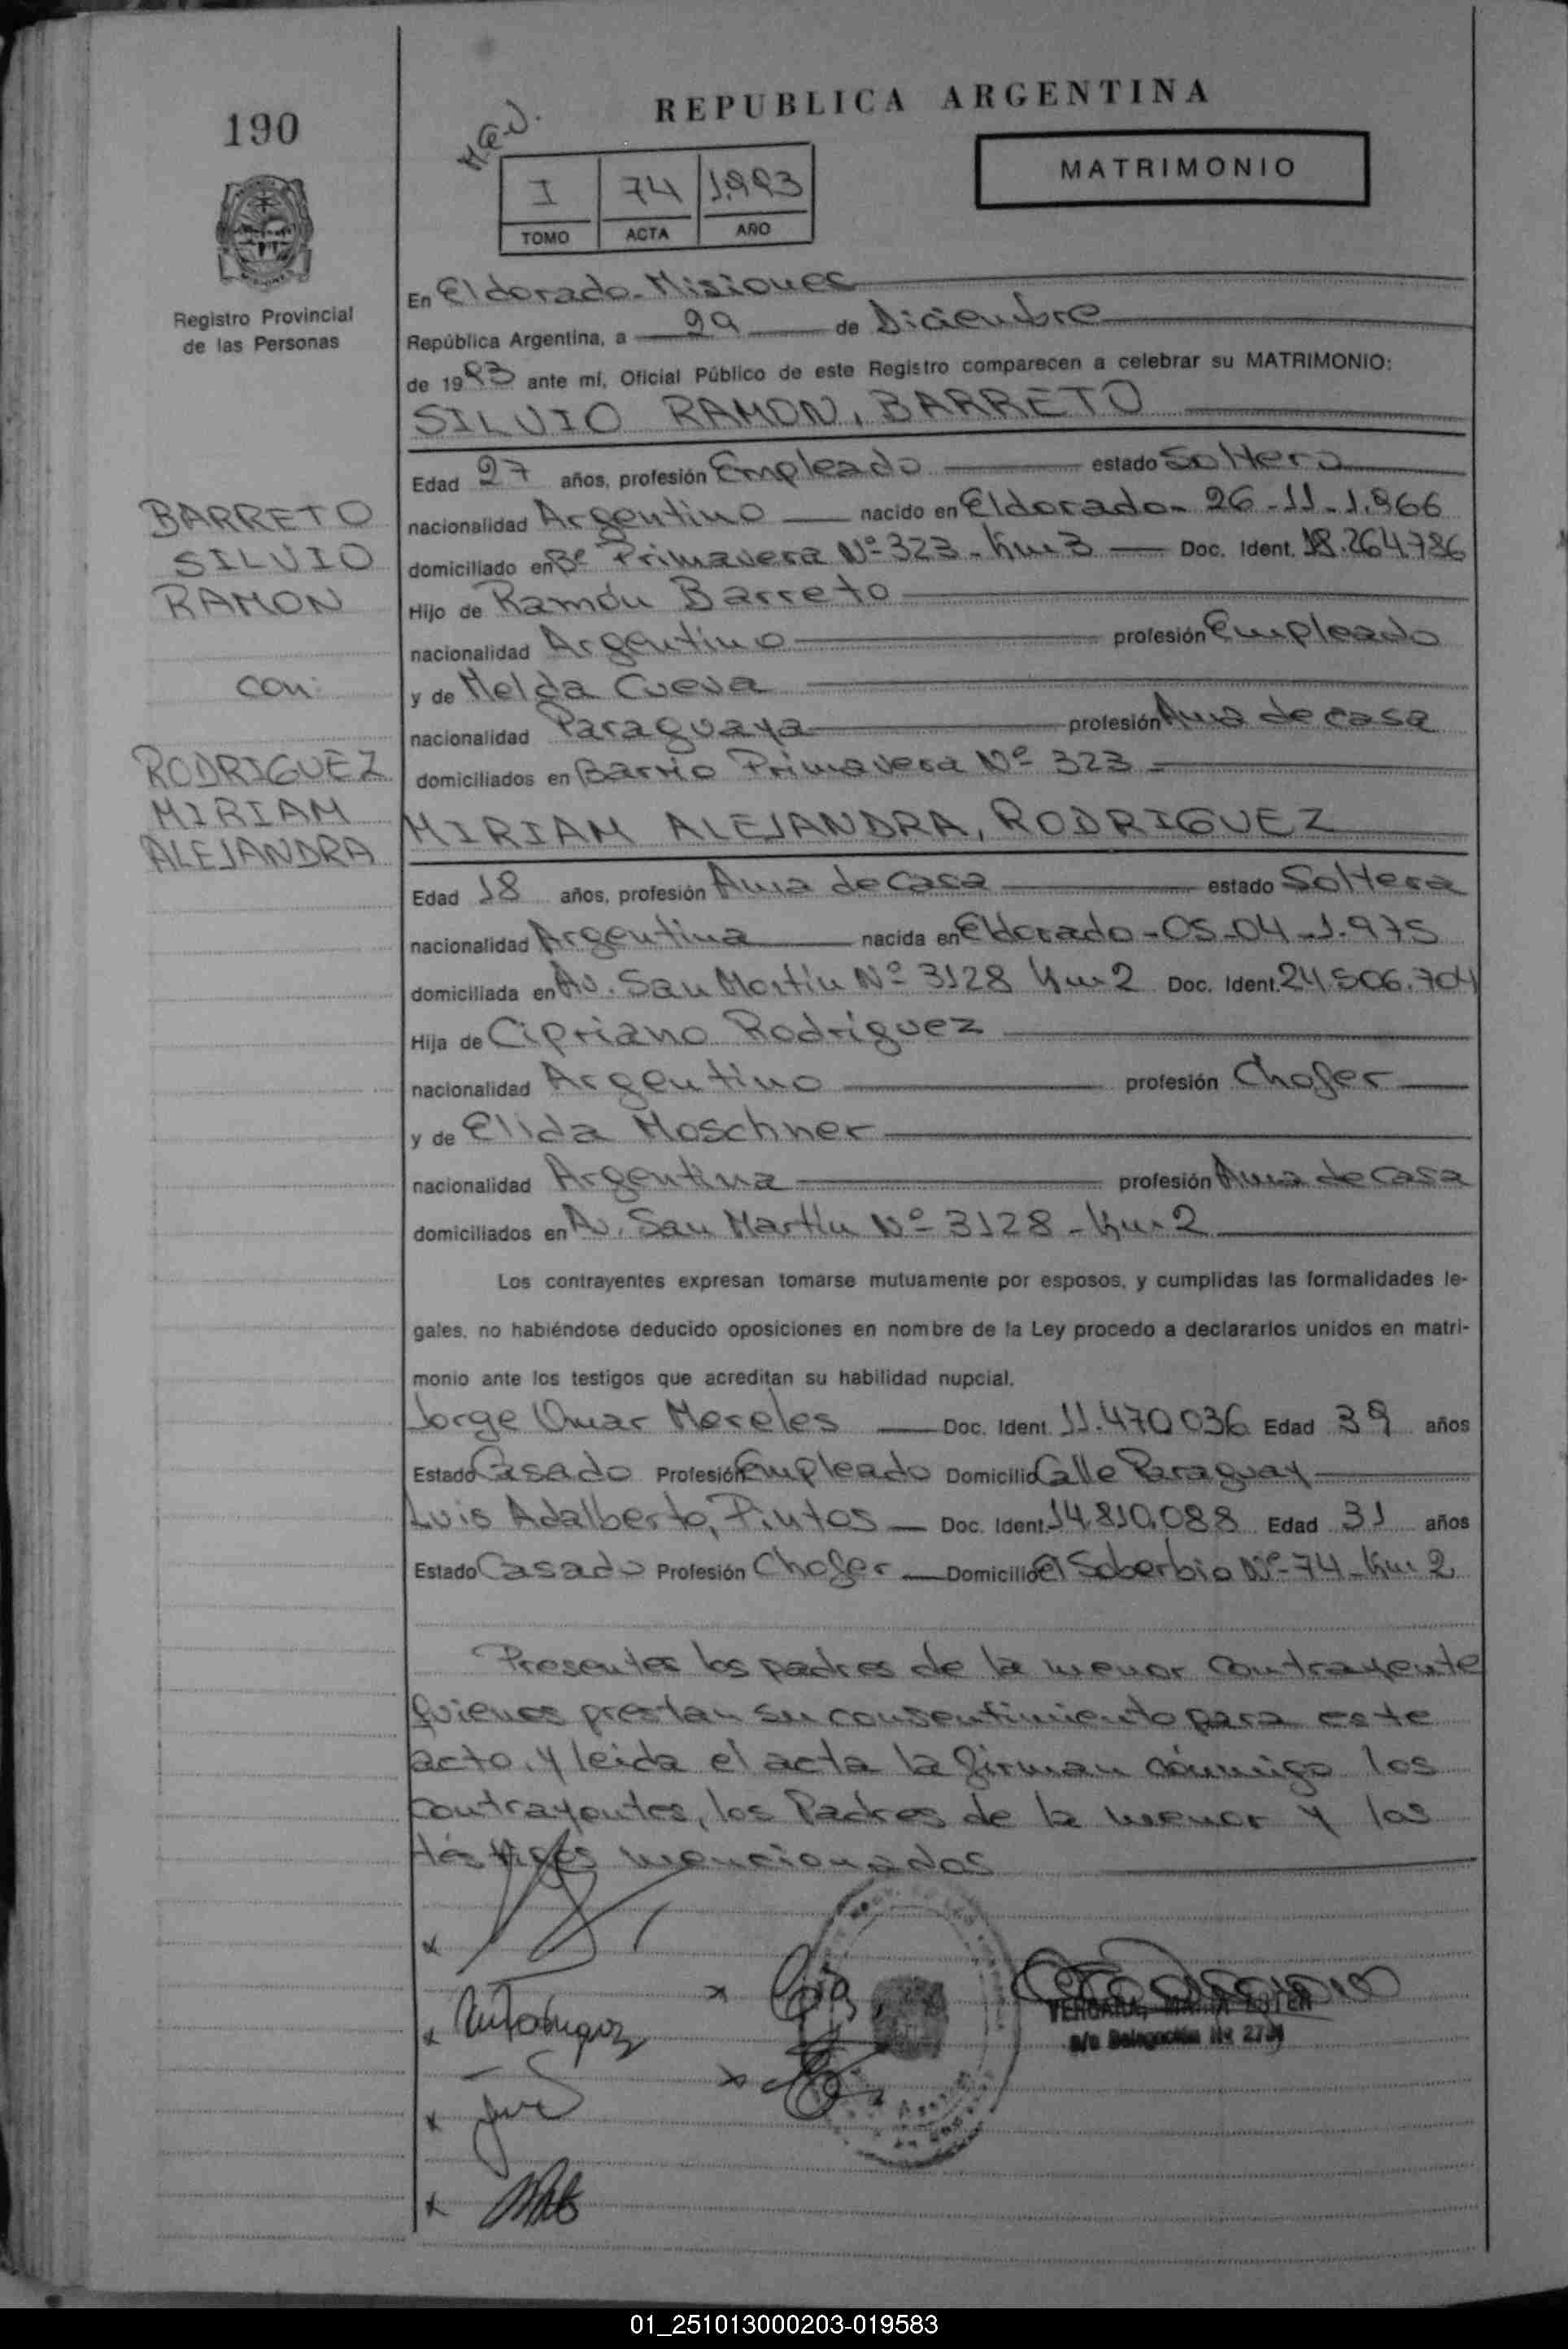 190
REPUBLICA ARGENTINA
MATRIMONIO
I 74 1.993
TOMO ACTA AÑO
Registro Provincial
de las Personas
En Eldorado - Misiones
República Argentina, a 29 de Diciembre
de 1993 ante mí, Oficial Público de este Registro comparecen a celebrar su MATRIMONIO:
SILVIO RAMON, BARRETO
Edad 27 años, profesión Empleado estado Soltero
nacionalidad Argentino nacido en Eldorado - 26-11-1.966
domiciliado en Bº Primavera Nº 323 - Km 3 Doc. Ident. 18.264.786
Hijo de Ramón Barreto
nacionalidad Argentino profesión Empleado
y de Melda Cueva
nacionalidad Paraguaya profesión Ama de casa
domiciliados en Barrio Primavera Nº 323
BARRETO
SILVIO
RAMON
con:
RODRIGUEZ
MIRIAM
ALEJANDRA
MIRIAM ALEJANDRA, RODRIGUEZ
Edad 18 años, profesión Ama de casa estado Soltera
nacionalidad Argentina nacida en Eldorado - 05-04-1.975
domiciliada en Av. San Martín Nº 3128 Km 2 Doc. Ident. 24.506.704
Hija de Cipriano Rodríguez
nacionalidad Argentino profesión Chofer
y de Elida Moschner
nacionalidad Argentina profesión Ama de casa
domiciliados en Av. San Martín Nº 3128 - Km 2
Los contrayentes expresan tomarse mutuamente por esposos, y cumplidas las formalidades le-
gales, no habiéndose deducido oposiciones en nombre de la Ley procedo a declararlos unidos en matri-
monio ante los testigos que acreditan su habilidad nupcial.
Jorge Omar Mereles Doc. Ident. 11.470.036 Edad 39 años
Estado Casado Profesión Empleado Domicilio Calle Paraguay
Luis Adalberto, Pintos Doc. Ident. 14.810.088 Edad 31 años
Estado Casado Profesión Chofer Domicilio El Soberbio Nº 74 - Km 2
Presentes los padres de la menor contrayente
quienes prestan su consentimiento para este
acto, y leida el acta la firman conmigo los
contrayentes, los Padres de la menor y los
testigos mencionados
VERGARA, MARIA ESTER
a/c Delegación Nº
01_251013000203-019583